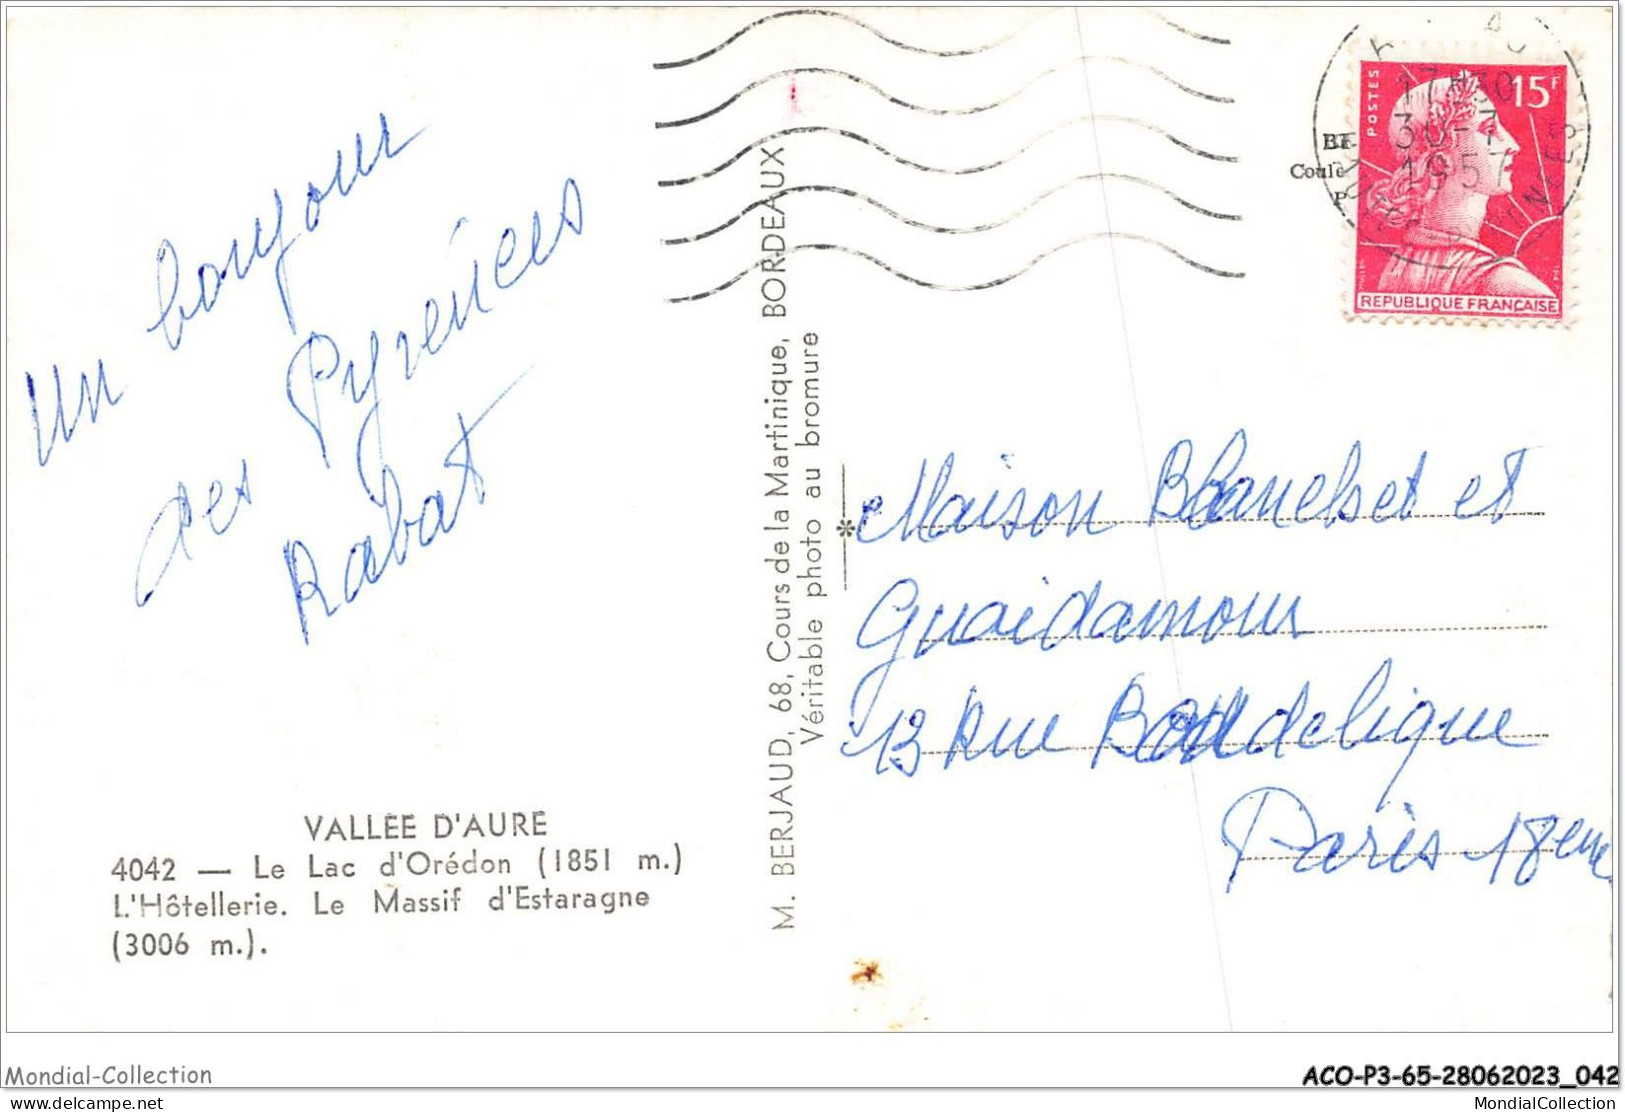 Un bonjour
des Pyrénées
Rabat
VALLÉE D'AURE
4042 — Le Lac d'Orédon (1851 m.)
L'Hôtellerie. Le Massif d'Estaragne
(3006 m.).
M. BERJAUD, 68, Cours de la Martinique, BORDEAUX
Véritable photo au bromure
15F
POSTES
REPUBLIQUE FRANÇAISE
17H30
30-7
1957
Coule
Maison Blanchet et
Guaidamour
13 Rue Baudelique
Paris 18eme
Mondial-Collection
ACO-P3-65-28062023_042
delcampe.net
MondialCollection